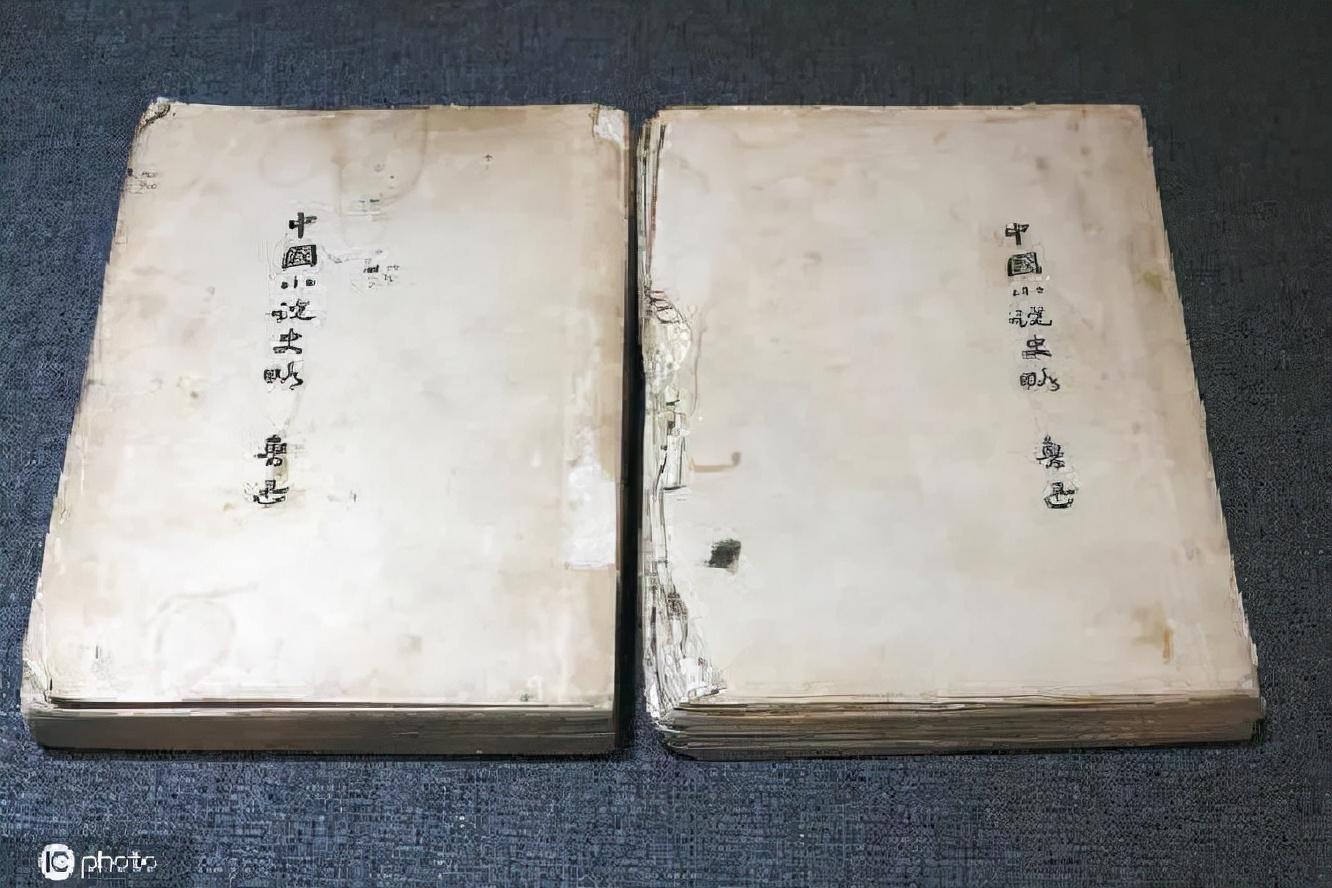 中國小説史略
魯迅
中國小説史略
魯迅
IC photo